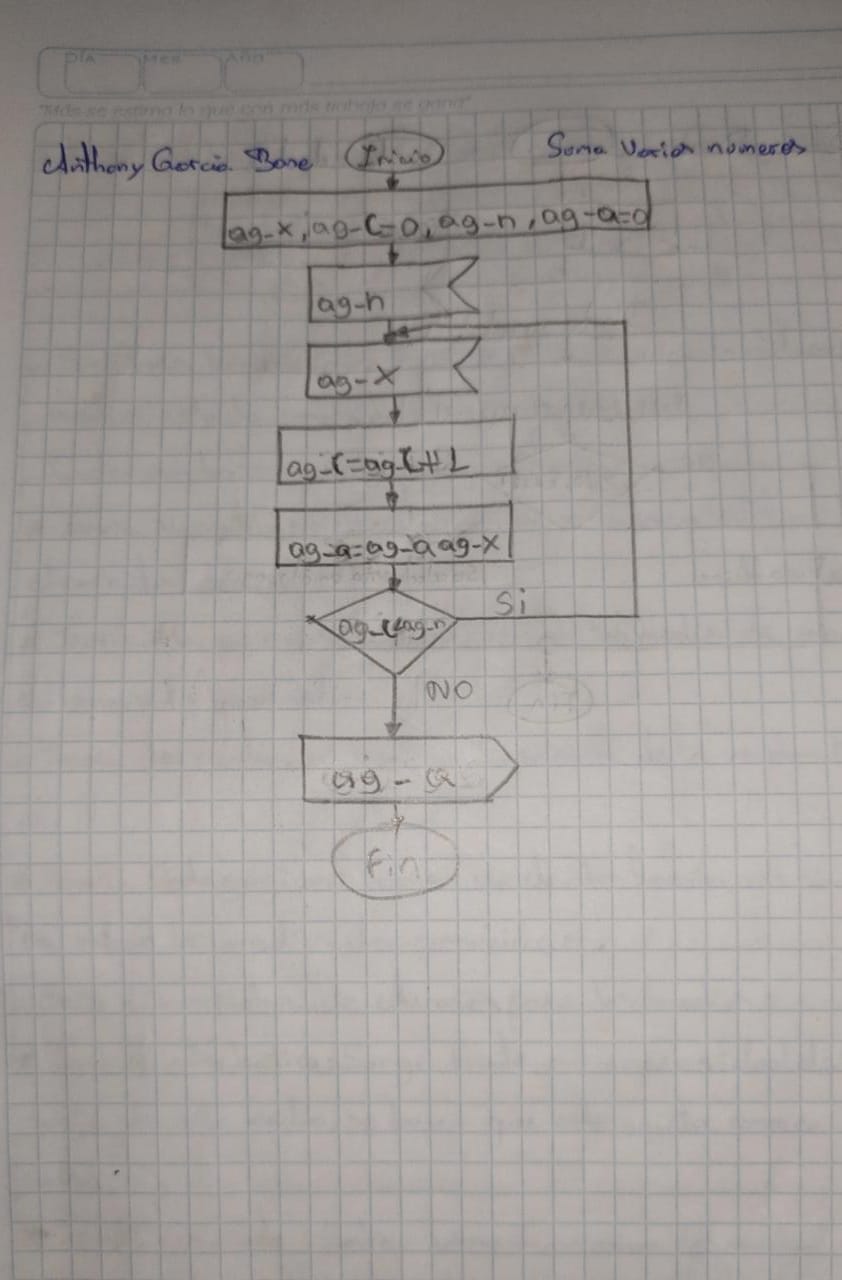 DÍA MES AÑO
"Más se estima lo que con más trabajo se gana"
Anthony Garcia Bone Inicio Suma Varios números
ag-x, ag-c=0, ag-n, ag-a=0
ag-n
ag-x
ag-c=ag-c+1
ag-a=ag-a ag-x
ag-c<ag-n Si
NO
ag-a
Fin